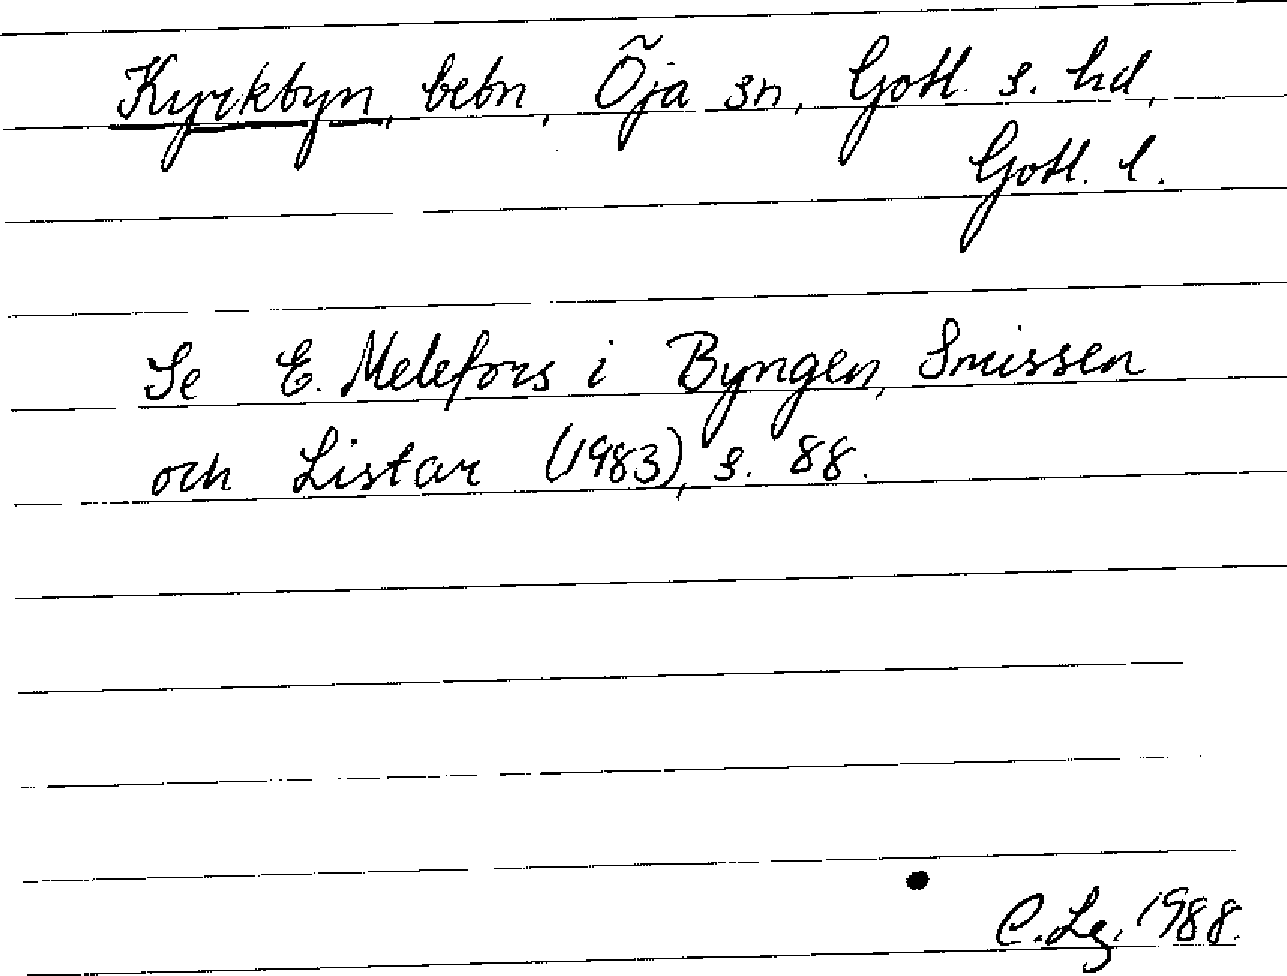 Kyrkbyn, bebn, Öja sn, Gotl. s. hd,
Gotl. l.
Se E. Melefors i Byngen, Smissen
och Listar (1983), s. 88.
C. Lg. 1988.